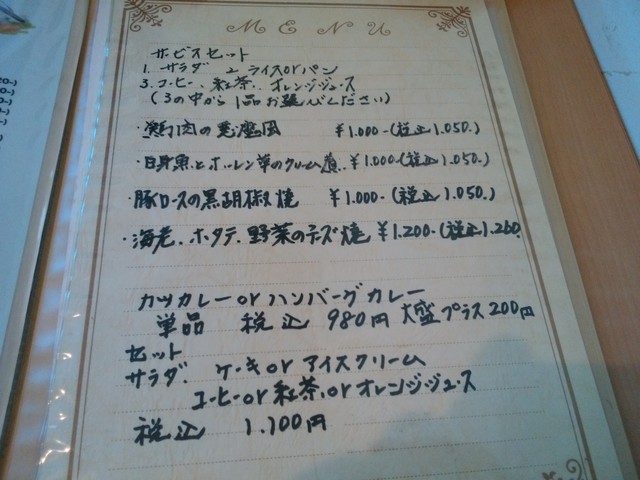 MENU
サービスセット
1. サラダ 2. ライスorパン
3. コーヒー、紅茶、オレンジジュース
(3の中から1品お選びください)
・鶏肉の悪魔風 ¥1.000-(税込1.050.)
・白身魚とホーレン草のクリーム煮.. ¥1.000-(税込1.050.)
・豚ロースの黒胡椒焼 ¥1.000-(税込1.050.)
・海老、ホタテ、野菜のチーズ焼 ¥1.200-(税込1.260.
カツカレーorハンバーグカレー
単品 税込 980円 大盛プラス200円
セット
サラダ、ケーキorアイスクリーム
コーヒーor紅茶.orオレンジジュース
税込 1.100円